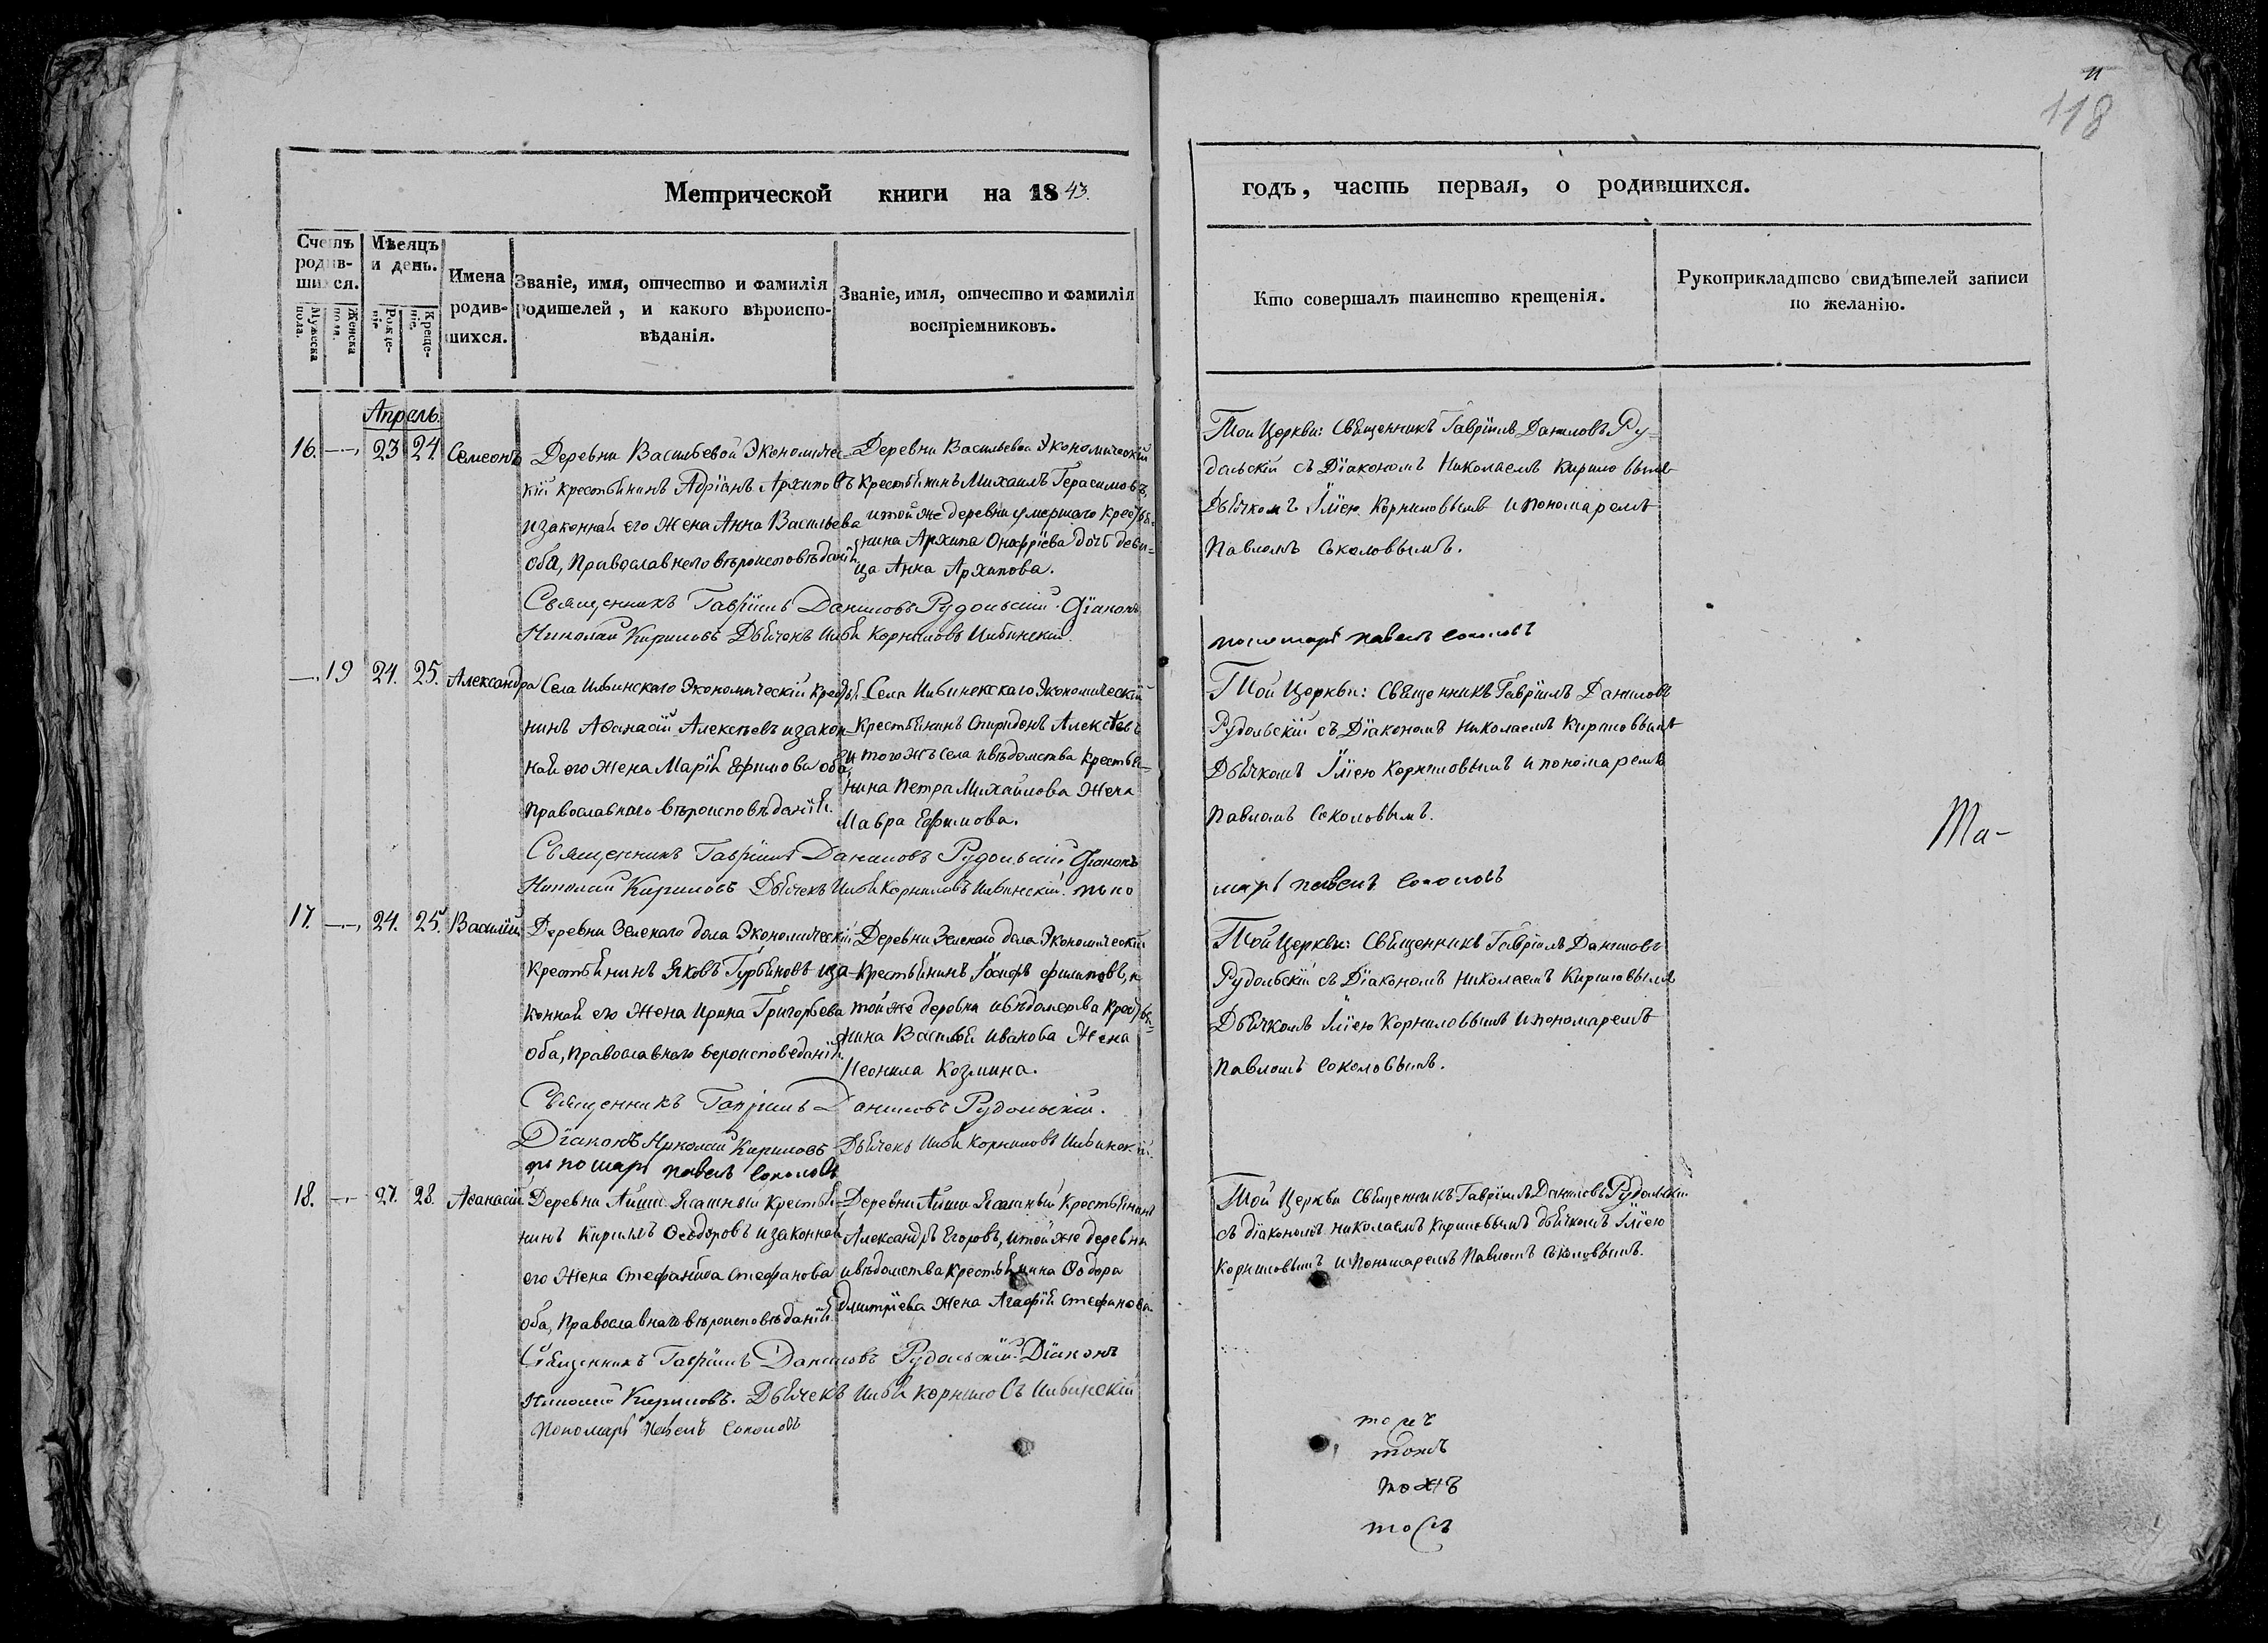 11
118
Метрической книги на 1843.
годъ, часть первая, о родившихся.
Счетъ родившихся.
Мѣсяцъ и день.
Мужеска пола.
Женска пола.
Рожденіе.
Крещеніе.
Имена родившихся.
Званіе, имя, отчество и фамилія родителей, и какого вѣроисповѣданія.
Званіе, имя, отчество и фамилія воспріемниковъ.
Кто совершалъ таинство крещенія.
Рукоприкладтсво свидѣтелей записи по желанію.
Апрель.
16. — 23 24 Симеонъ
Деревни Васильевой Экономичес-
кій крестьянинъ Адріанъ Архиповъ
и законная его жена Анна Васильева
оба, Православнаго вѣроисповѣданія.
Деревни Васильевой Экономическій
крестьянинъ Михаилъ Герасимовъ,
и той же деревни умершаго кресть-
янина Архипа Онафріева дочь деви-
ца Анна Архипова.
Той Церкви: Священникъ Гавріилъ Даниловъ Ру-
дольскій съ Діакономъ Николаемъ Кириловымъ
Дьячкомъ Іліею Корниловымъ и пономаремъ
Павломъ Соколовымъ.
Священникъ Гавріилъ Даниловъ Рудольскій. Діаконъ
Николай Кириловъ Дьячекъ Илья Корниловъ Ильинскій.
пономарь павелъ соколовъ
— 19 24. 25. Александра
Села Ильинскаго Экономическій кресть-
нинъ Аѳанасій Алексѣевъ и закон-
ная его жена Марія Ефимова оба,
Православнаго вѣроисповѣданія.
Села Ильинскскаго Экономическій
Крестьянинъ Спиридонъ Алексѣевъ
и того жъ села и вѣдомства крестья-
нина Петра Михайлова жена
Мавра Ефимова.
Той Церкви: Священникъ Гавріилъ Даниловъ
Рудольскій съ Діакономъ Николаемъ Кириловымъ
Дьячкомъ Іліею Корниловымъ и пономаремъ
Павломъ Соколовымъ.
Ma-
Священникъ Гавріилъ Даниловъ Рудольскій Діаконъ
Николай Кириловъ Дьячекъ Илья Корниловъ Ильинскій. поно
марь павелъ соколовъ
17. — 24. 25. Василій
Деревни Зеленаго дола Экономическій
крестьянинъ Яковъ Гурьяновъ и за-
конная его жена Ирина Григорьева
оба, православнаго вероисповеданія.
Деревни Зеленаго дола Экономическій
крестьянинъ Іосифъ филиповъ, и
той же деревни и вѣдомства кресть-
янина Василья Иванова жена
Неонила Козмина.
Той Церкви: Священникъ Гавріилъ Даниловъ
Рудольскій съ Діакономъ Николаемъ Кириловымъ
Дьячкомъ Іліею Корниловымъ и пономаремъ
Павломъ Соколовымъ.
Священникъ Гавріилъ Даниловъ Рудольскій.
Діаконъ Николай Кириловъ Дьячекъ Илья Корниловъ Ильинскій.
пономарь павелъ соколовъ
18. — 27. 28. Аѳанасій
Деревни Айши Ясашный крестья-
нинъ Кирилъ Ѳеодоровъ и законная
его жена Стефанида Стефанова
оба, Православнаго вѣроисповѣданія.
Деревни Айши Ясашный Крестьянинъ
Александръ Егоровъ, и той же деревни
и вѣдомства крестьянина Ѳедора
Дмитріева жена Агафія Стефанова.
Той Церкви Священникъ Гавріилъ Даниловъ Рудольскій
съ діакономъ николаемъ кириловымъ дьячкомъ Іліею
Корниловымъ и Пономаремъ Павломъ Соколовымъ.
Священникъ Гавріилъ Даниловъ Рудольскій. Діаконъ
Николай Кириловъ. Дьячекъ Илья Корниловъ Ильинскій
Пономарь Павелъ Соколовъ
тожъ
тожъ
тожъ
тожъ